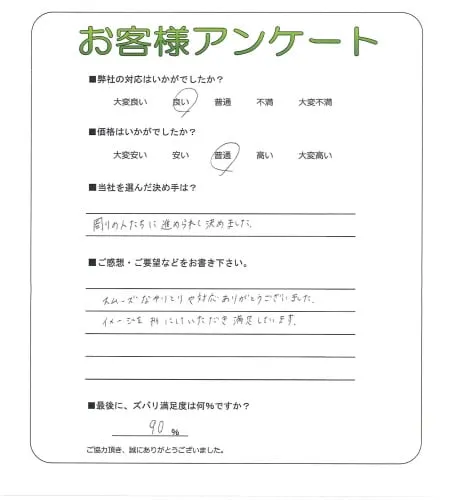 お客様アンケート
■弊社の対応はいかがでしたか？
大変良い 良い 普通 不満 大変不満
■価格はいかがでしたか？
大変安い 安い 普通 高い 大変高い
■当社を選んだ決め手は？
周りの人たちに進められて決めました。
■ご感想・ご要望などをお書き下さい。
スムーズなやりとりや対応ありがとうございました。
イメージを にしていただき満足しています。
■最後に、ズバリ満足度は何％ですか？
90 ％
ご協力頂き、誠にありがとうございました。